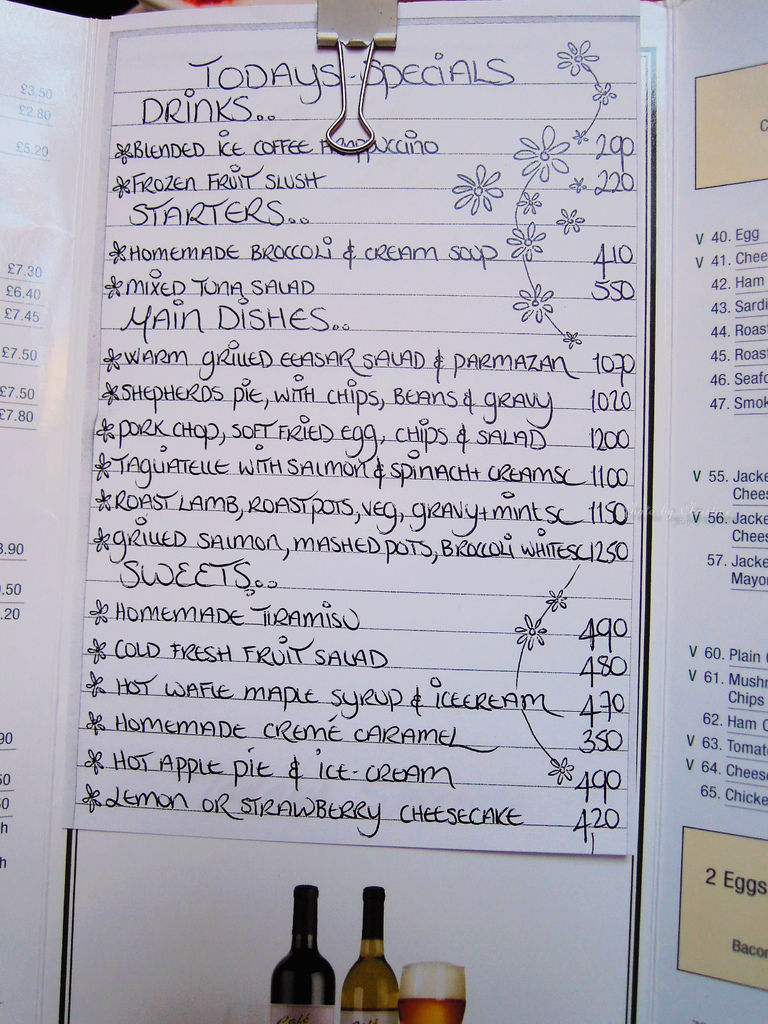 TODAYS SPECIALS
DRINKS..
BLENDED ICE COFFEE FRAPPUCCINO 290
FROZEN FRUIT SLUSH 220
STARTERS..
HOMEMADE BROCCOLI & CREAM SOUP 410
MIXED TUNA SALAD 550
MAIN DISHES..
WARM GRILLED CEASAR SALAD & PARMAZAN 1070
SHEPHERDS PIE, WITH CHIPS, BEANS & GRAVY 1020
PORK CHOP, SOFT FRIED EGG, CHIPS & SALAD 1200
TAGLIATELLE WITH SALMON & SPINACH + CREAM SC 1100
ROAST LAMB, ROAST POTS, VEG, GRAVY + MINT SC 1150
GRILLED SALMON, MASHED POTS, BROCCOLI WHITE SC 1250
SWEETS...
HOMEMADE TIRAMISU 490
COLD FRESH FRUIT SALAD 480
HOT WAFLE MAPLE SYRUP & ICECREAM 470
HOMEMADE CREMÉ CARAMEL 350
HOT APPLE PIE & ICE-CREAM 490
LEMON OR STRAWBERRY CHEESECAKE 420
£3.50
£2.80
£5.20
£7.30
£6.40
£7.45
£7.50
£7.50
£7.80
V 40. Egg
V 41. Chee
42. Ham
43. Sardi
44. Roast
45. Roast
46. Seafo
47. Smok
V 55. Jacke
Chees
V 56. Jacke
Chees
57. Jacke
Mayor
V 60. Plain
V 61. Mushr
Chips
62. Ham
V 63. Tomat
V 64. Cheese
65. Chicke
2 Eggs
Bacon